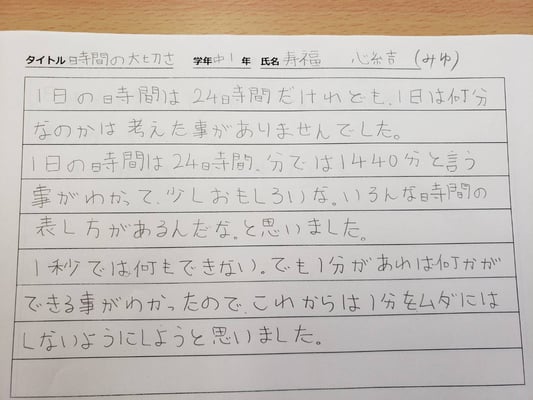 タイトル 時間の大切さ 学年 中1 年 氏名 寿福 心結 (みゆ)
1日の時間は24時間だけれども、1日は何分
なのかは考えた事がありませんでした。
1日の時間は24時間、分では1440分と言う
事がわかって、少しおもしろいな。いろんな時間の
表し方があるんだな。と思いました。
1秒では何もできない。でも1分があれば何かが
できる事がわかったので、これからは1分をムダには
しないようにしようと思いました。